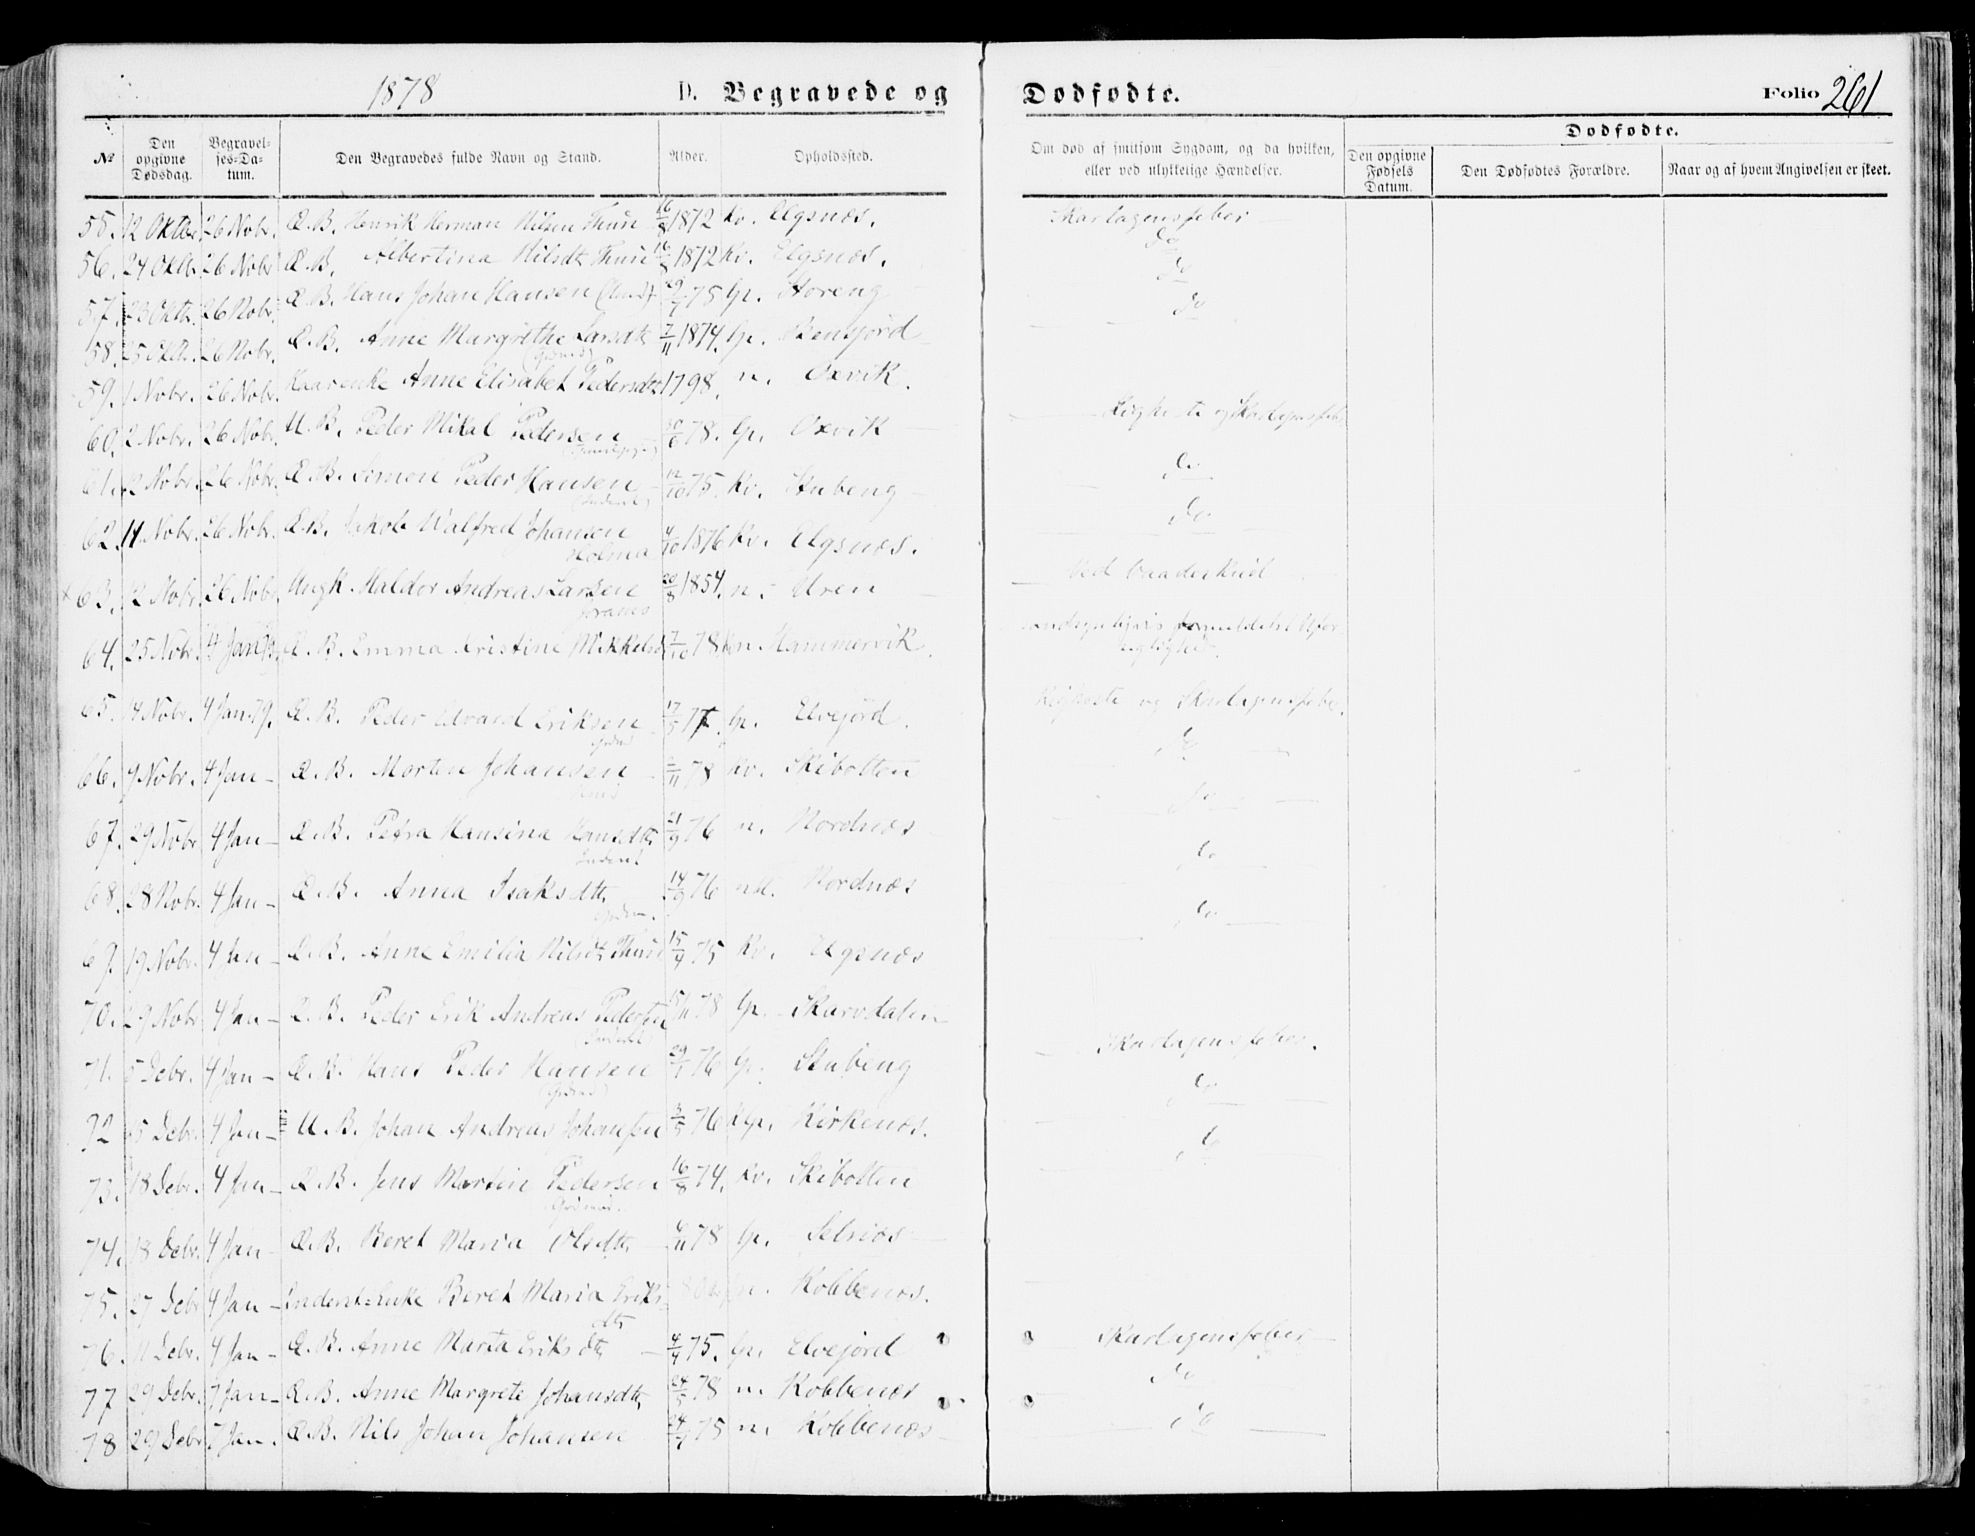 1878 D. Begravede og Dodfodte. Folio 261
№ Den opgivne Dødsdag. Begravelses-Datum. Den Begravedes fulde Navn og Stand. Alder. Opholdssted. Om død af smitsom Sygdom, og da hvilken, eller ved ulykkelige Hændelser. Dødfødte. Den opgivne Fødsels Datum. Den Dødfødtes Forældre. Naar og af hvem Angivelsen er skeet.
55. 12 Oktbr 26 Nobr. Æ. B. Henrik Herman Nilsen Thuri 16/8 1872 Kv. Elgsnæs. Skarlagensfeber
56. 24 Oktb. 26 Nobr Æ. B. Albertina Nilsdt. Thuri 16/8 1872 Kv. Elgsnæs. do
57. 23 Oktb. 26 Nobr. Æ. B. Hans Johan Hansen 75 Gr. Storeng do
58. 25 Oktb. 26 Nobr. Æ. B. Anne Margrethe Larsdt. 7/11 1874. Gr. Stensfjord do
59. 1 Nobr. 26 Nobr. Kaarenke Anne Elisabet Pedersdtr 1798. n. Oxvik.
60. 2 Nobr. 26 Nobr. U. B. Peder Mikal Pedersen 78. Gr. Oxvik Kighoste og Skarlagensfeb
61. 2 Nobr. 26 Nobr. Æ. B. Simon Peder Hansen 12/10 75. Kv. Stubeng do
62. 11 Nobr. 26 Nobr. Æ. B. Jakob Walfred Johansen 4/10 1876 Kv. Elgsnæs. do
Holma
63. 12 Nobr. 26 Nobr. Ungk. Haldor Andreas Larsen 20/8 1854. n. Uren Ved baadeskud
64. 25 Nobr. 4 Jan 79. Æ. B. Emma Kristine Mikkelsd 7/10 78 Hammervik.
65. 14 Nobr. 4 Jan. 79. Æ. B. Peder Edvard Eriksen 17/5 77. Gr. Elvejord. Kighoste og Skarlagensfeber.
66. 9 Nobr. 4 Jan – Æ. B. Morten Johansen 78 Kv. Skibotten do
67. 29 Nobr 4 Jan – Æ. B. Petra Hansina Hansdtr. 21/9 76 n. Nordnæs do
Indent
68. 28 Nobr. 4 Jan – Æ. B. Anna Isaksdtr. 14/9 76 Nordnæs do
69. 19 Nobr. 4 Jan – Æ. B. Anne Emilia Nilsdt Thuri 75 Kv. Elgsnæs do
70. 29 Nobr 4 Jan – Æ. B. Peder Erik Andreas Pedersen 78 Gr. Skarvdalen
71. 5 Debr. 4 Jan – Æ. B. Hans Peder Hansen 76 Gr. Stubeng Skarlagensfeber.
72 5 Debr. 4 Jan – U. B. Johan Andreas Johansen 3/5 76 Kirkenæs. do
73. 18 Debr. 4 Jan – Æ. B. Jens Martin Pedersen 16/8 74. Kv. Skibotten do
74. 18 Debr. 4 Jan – Æ. B. Beret Maria Olsdtr. 6/11 78 Gr. Selnæs
75. 27 Debr 4 Jan – Indent-Enke Beret Maria Eriks- n. Kobbenæs.
dtr
76. 11 Debr. 4 Jan – Æ. B. Anne Marta Eriksdtr 75. Gr. Elvejord Skarlagensfeber
77 29 Debr. 7 Jan – Æ. B. Anne Margrete Johansdtr. 24/5 78 n. Kobbenæs do
78 29 Debr 7 Jan. Æ. B. Nils Johan Johansen 75 n. Kobbenæs do